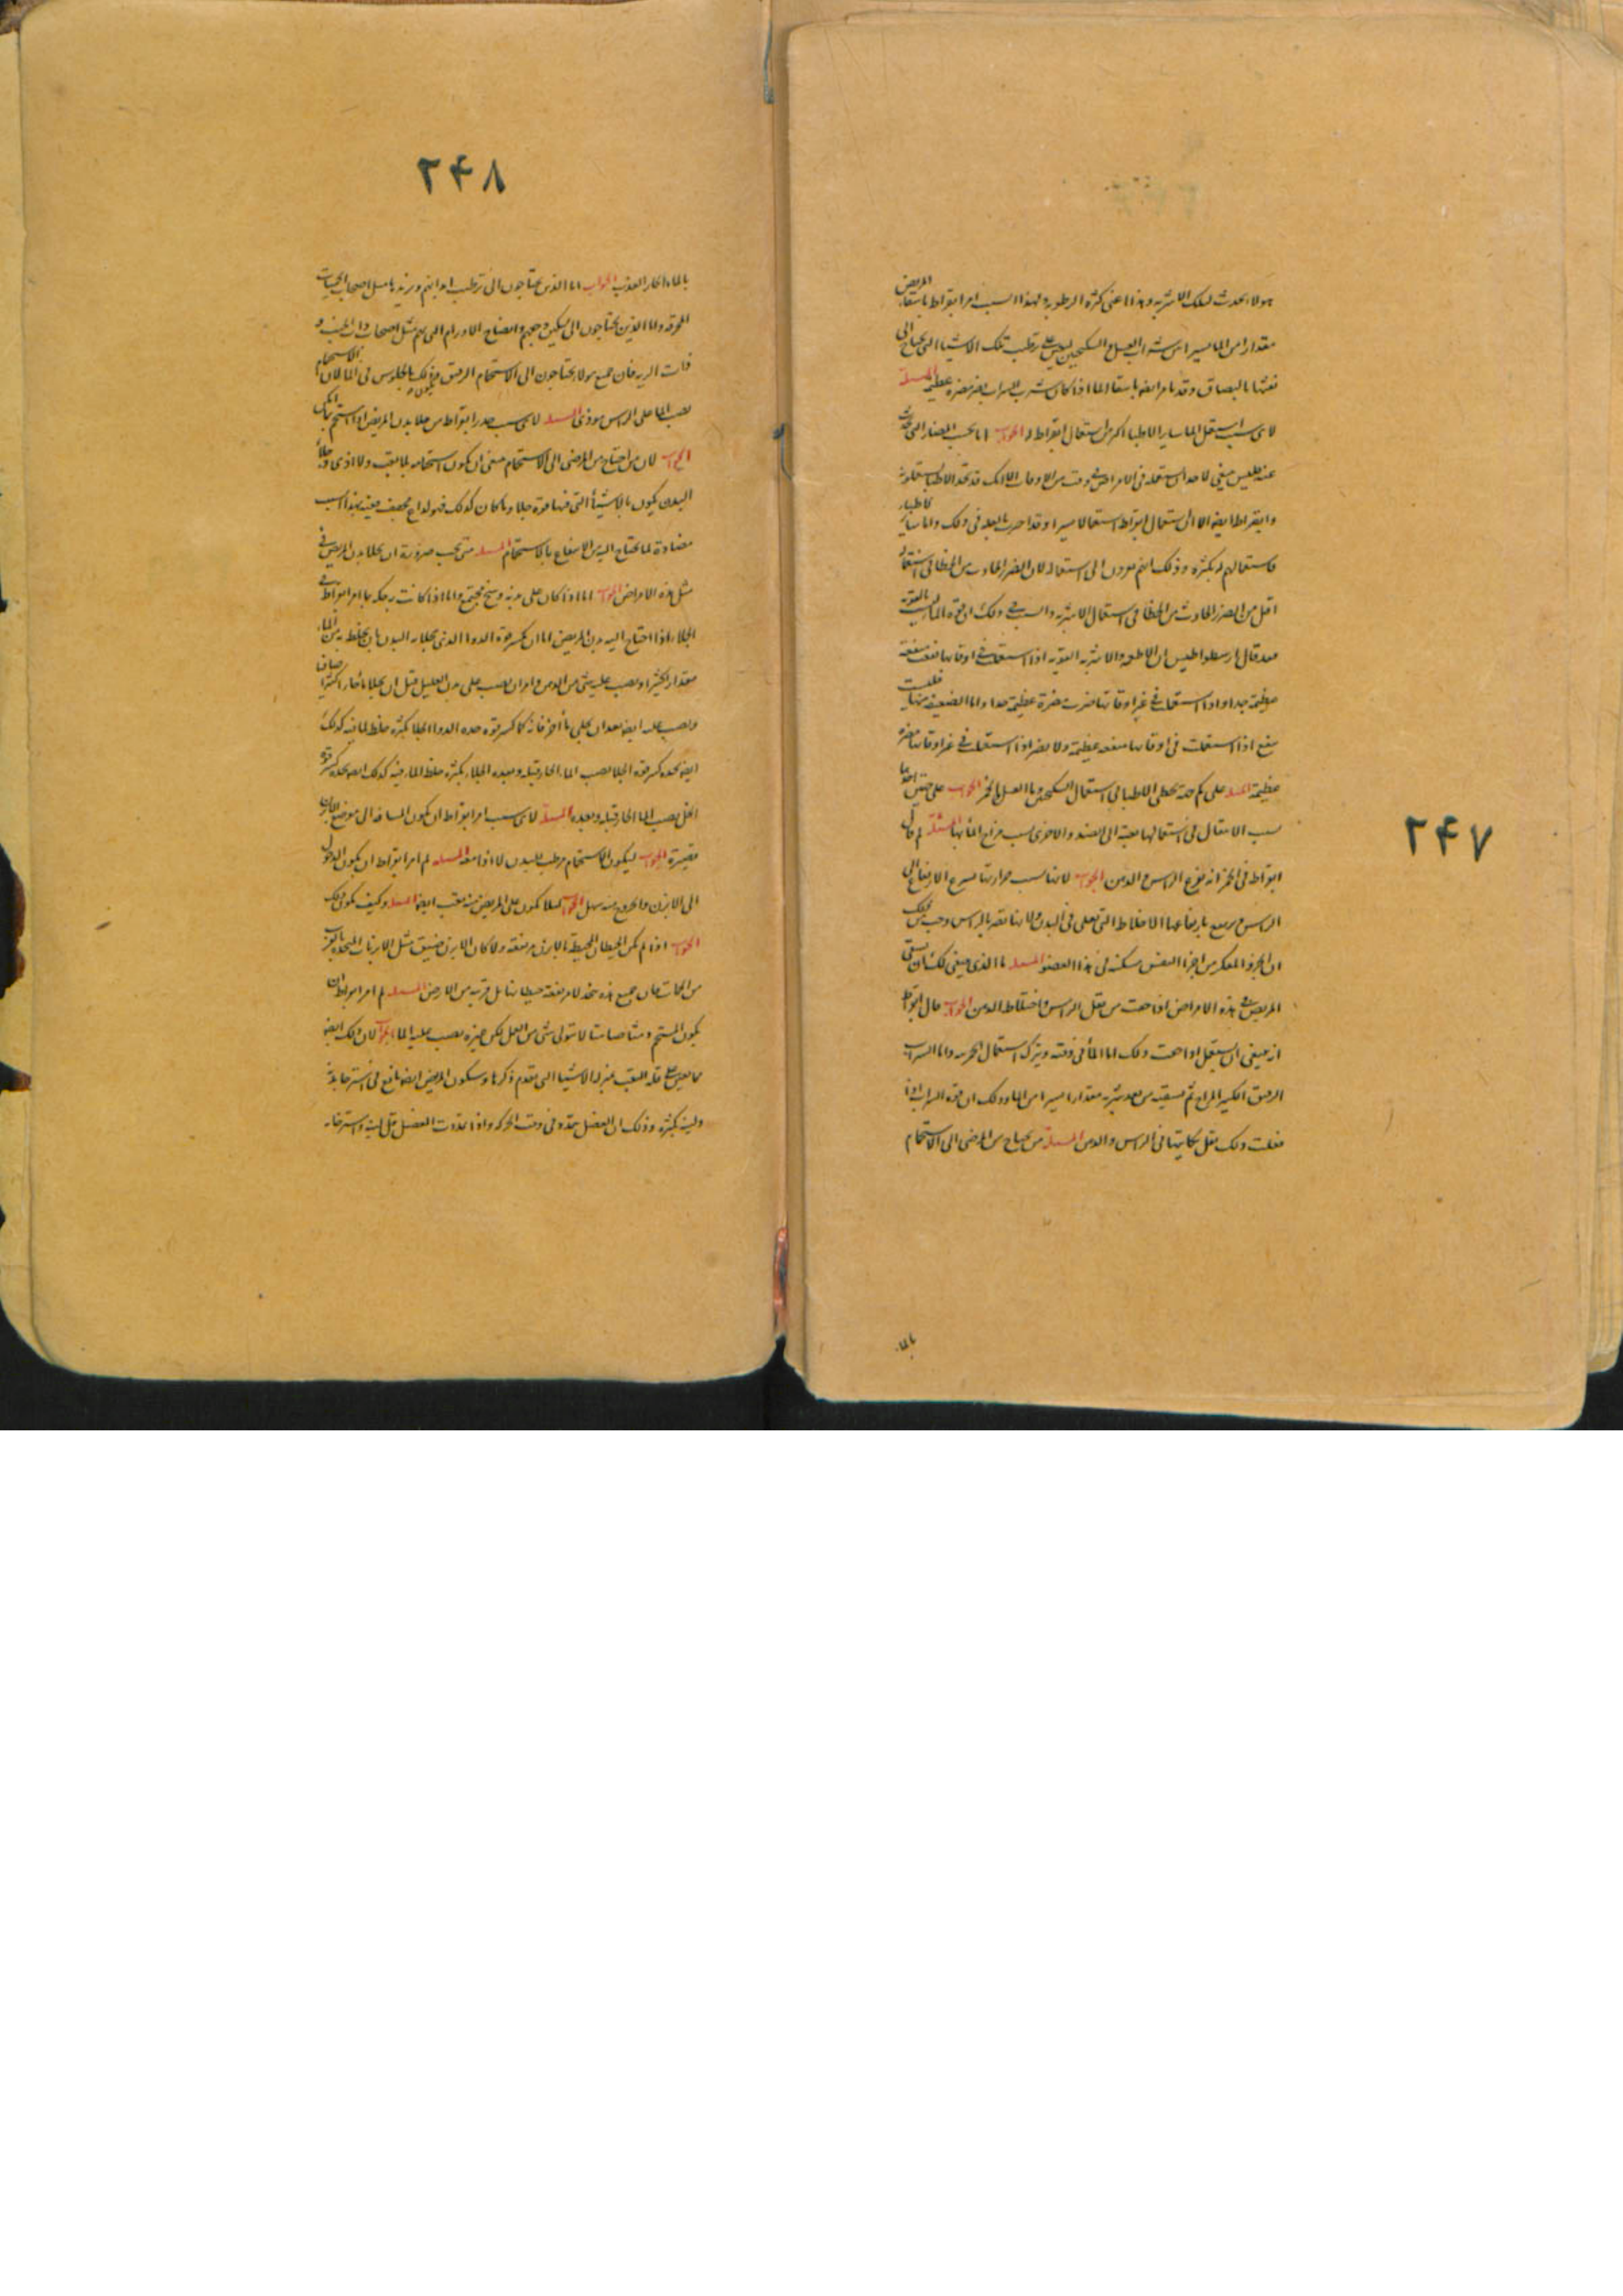 هولاء يحدث لتلك الاشربه وهذا اعنى كثرة الرطوبه ولهذا السبب امر ابقراط باسقاء المريض
مقدارا من الماء يسيرا بين شراب العسل والسكنجبين ليعين على ترطيب تلك الاشيا التى يحتاج الى
نفثها بالبصاق وقد يامر ايضه باسقا الما اذا كان شرب الشراب يضر مضره عظيمه المسئلة
لاى سبب استعمل الما ساير الاطبا اكثر من استعمال ابقراط له الجواب اما بحسب المضار التى تحدث
عنه فليس ينبغى لاحد ان يستعمله فى الامراض فى وقت من الاوقات الا انك قد تجد الاطبا يستعملونه
وابقراط ايضه الا ان استعمال ابقراط استعمالا يسيرا وقد اخبرت بالعله فى ذلك واما ساير الاطباء
فاستعمالهم له بكثره وذلك انهم يعدون الى استعماله لان الضرر الحادث من الخطا فى استعماله
اقل من الضرر الحادث من الخطا فى استعمال الاشربه والسبب فى ذلك ان قوة الما ليست بالقويه
فقد قال ارسطراطيس ان الاطعمه والاشربه القويه اذا استعملت فى اوقاتها نفعت منفعة
عظيمة جدا واذا استعملت فى غير اوقاتها ضرت مضرة عظيمة جدا واما الضعيفه منها فليست
تنفع اذا استعملت فى اوقاتها منفعه عظيمة ولا تضر اذا استعملت فى غير اوقاتها مضرة
عظيمة المسئلة على كم جهة يخطى الاطبا فى استعمال السكنجبين وما العسل والخمر الجواب على جهتين احدهما
بسبب الانتقال فى استعمالها بغتة الى الضد والاخرى بسبب مزاج المائها المسئلة لم قال
ابقراط فى الخمر انه يقرع الراس والذهن الجواب لانها بسبب حرارتها تسرع الارتفاع الى
الراس ويرتفع بارتفاعها الاخلاط التى تغلى فى البدن ولانها تضر بالراس وجب من ذلك
ان الجزو المفكر من اجزا النفس مسكنه فى هذا العضو المسئلة ما الذى ينبغى لك ان تسقى
المريض فى هذه الامراض اذا خفت من ثقل الراس واختلاط الذهن الجواب قال ابقراط
انه ينبغى ان يستعمل اذا خفت ذلك اما الما فى وقته ويترك استعمال الخمر بته واما الشراب
الرقيق الكثير المزاج ثم تسقيه من بعد شربه مقدارا يسيرا من الماء وذلك ان قوة الشراب اذا
فعلت ذلك تقل نكايتها فى الراس والذهن المسئلة من يحتاج من المرضى الى الاستحمام
بالماء
٢٤٧
٢٤٨
بالماء الحار العذب الجواب اما الذين يحتاجون الى ترطيب ابدانهم وتبريدها مثل اصحاب الحميات
المحرقه واما الذين يحتاجون الى تسكين وجعهم وانضاج الاورام التى بهم مثل اصحاب ذات الجنب و
ذات الريه فان جميع هولاء يحتاجون الى الاستحمام الرقيق ويكون ذلك بالجلوس فى الما لان الاستحمام
بصب الما على الراس موذى المسئلة لاى سبب حذر ابقراط من جلا بدن المريض اذا استحم بالنكى
الجواب لان من احتاج من المرضى الى الاستحمام ينبغى ان يكون استحمامه بلا تعب ولا اذى وجلا
البدن يكون بالاشيا التى فيها قوة جلا وما كان كذلك فهو لذاع مجفف فيه بهذا السبب
مضادة لما يحتاج اليه من الانتفاع بالاستحمام المسئلة متى يجب ضرورة ان يجلا بدن المريض فى
مثل هذه الامراض الجواب اما اذا كان على بدنه وسخ مجتمع واما اذا كانت به حكه بما امر ابقراط فى
الجلا اذا احتاج اليه بدن المريض اما ان يكسر قوة الدوا الذى يجلا به البدن بان يخلط به من الماء
مقدار كثيرا ويصب عليه شى من الدهن وامر ان يصب على بدن العليل قبل ان يجلا ماء حار كثيرا صافيا
ويصب عليه ايضه بعد ان يجلى ماء اخر فانه كما كسر قوة حدة الدوا الجلا بكثره خلط الما فيه كذلك
ايضه يحده كسر قوة الجلا يصب الماء الحار قبله وبعده الجلاء بكثره خلط الماء فيه كذلك ايضه يحده كسر قوة
الخل بصب الما الحار قبله وبعده المسئلة لاى سبب امر ابقراط ان يكون المسافه الى موضع الابزن
قصيرة الجواب ليكون الاستحمام مرطب للبدن لا اذا معه المسئلة لم امر ابقراط ان يكون الدخول
الى الابزن والخروج منه سهل الجواب لئلا يكون على المريض منه تعب ايضه المسئلة وكيف يكون ذلك
الجواب اذا لم تكن الحيطان المحيطة بالابزن مرتفعه ولا كان الابزن ضيق مثل الابزنات المتخذه بالقرب
من الحمات فان جميع هذه تتخذ لا مرتفعة حيطانها بل قريبه من الارض المسئلة لم امر ابقراط ان
يكون المستحم صامتا لا يتولى شى من العمل لكن غيره يصب عليه الماء الجواب لان ذلك ايضه
مما يعين على قلة التعب بمنزلة الاشيا التى تقدم ذكرها وسكون المريض ايضه نافع فى استرخا بدنه
ولينه بكثره وذلك ان العضل يتمدد فى وقت الحركه واذا تمددت العضل قل لينه واسترخاه